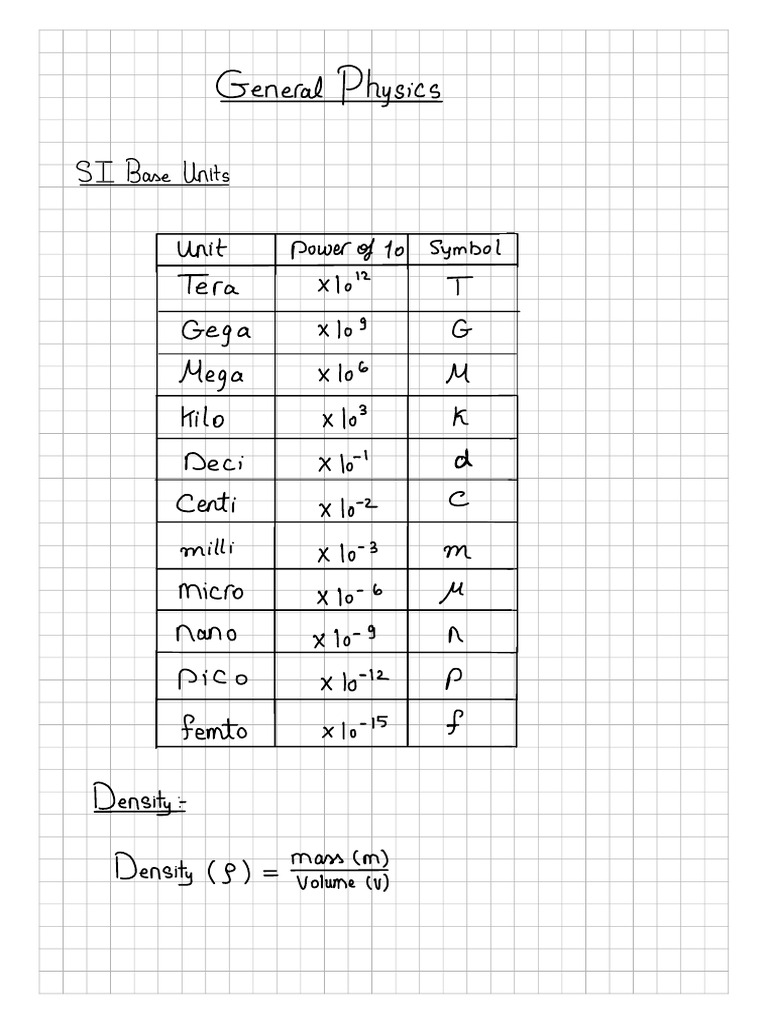 General Physics
SI Base Units
Unit Power of 10 Symbol
Tera x10¹² T
Gega x10⁹ G
Mega x10⁶ M
Kilo x10³ K
Deci x10⁻¹ d
Centi x10⁻² C
milli x10⁻³ m
micro x10⁻⁶ μ
nano x10⁻⁹ n
pico x10⁻¹² p
femto x10⁻¹⁵ f
Density :-
Density (ρ) = mass (m)
Volume (v)